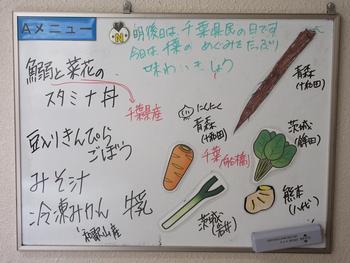 Aメニュー
明後日は、千葉県民の日です
今日は千葉のめぐみをたっぷり
味わいましょう
鰯と菜花の
スタミナ丼
千葉県産
豆入りきんぴら
ごぼう
みそ汁
冷凍みかん 牛乳
和歌山産
青森
(十和田)
にんにく
青森
(十和田)
茨城
(鉾田)
千葉
(船橋)
熊本
(八代)
茨城
(岩井)